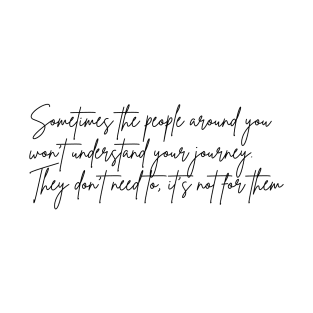 Sometimes the people around you
won't understand your journey.
They don't need to, it's not for them